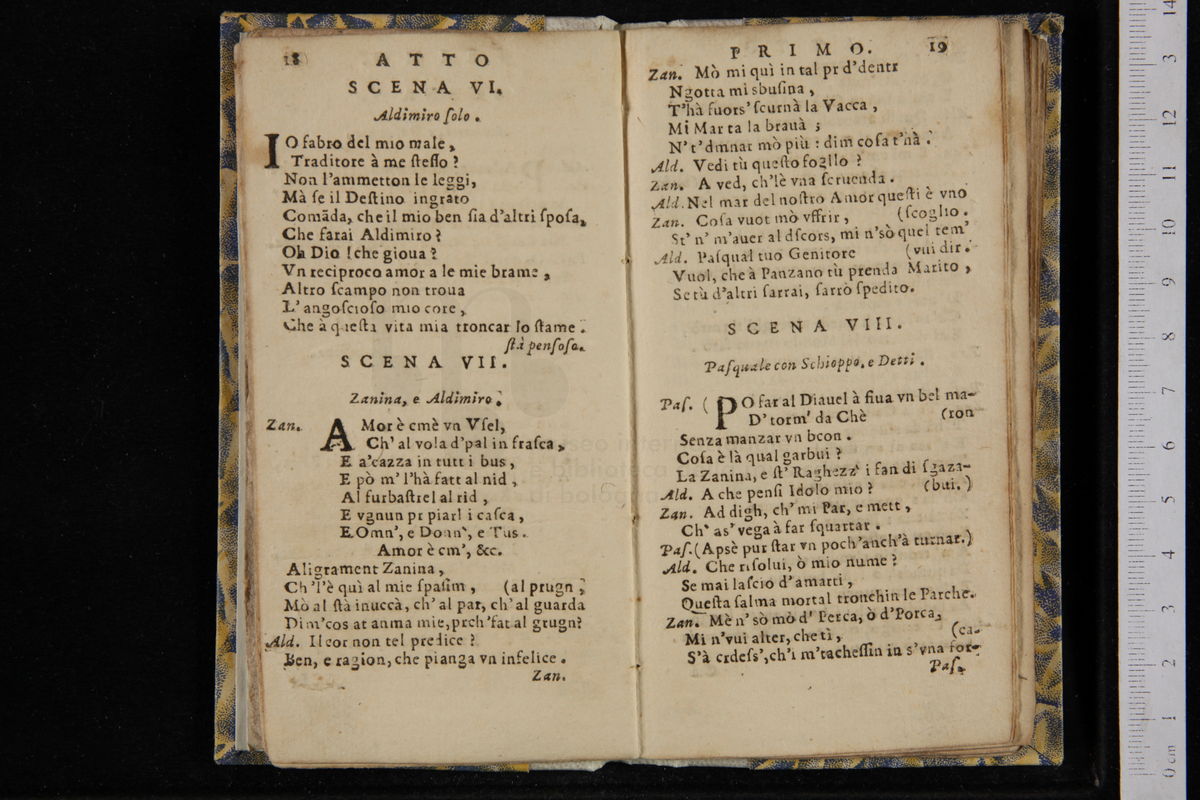 18 ATTO
SCENA VI.
Aldimiro ſolo.
IO fabro del mio male,
Traditore à me ſteſſo?
Non l'ammetton le leggi,
Mà ſe il Deſtino ingrato
Comãda, che il mio ben ſia d'altri ſpoſa,
Che farai Aldimiro?
Oh Dio! che gioua?
Vn reciproco amor a le mie brame,
Altro ſcampo non troua
L'angoſcioſo mio core,
Che à queſta vita mia troncar lo ſtame.
ſtà penſoſo.
SCENA VII.
Zanina, e Aldimiro.
Zan. AMor è cmè vn Vſel,
Ch' al vola d'pal in fraſca,
E a'cazza in tutt i bus,
E pò m' l'hà fatt al nid,
Al furbaſtrel al rid,
E vgnun pr piarl i caſca,
E Omn', e Donn', e Tus.
Amor è cm', &c.
Aligrament Zanina,
Ch'l'è quì al mie ſpaſim, (al prugn;
Mò al ſtà inuccà, ch' al par, ch' al guarda
Dim'cos at anma mie, prch'fat al grugn?
Ald. Il cor non tel predice?
Ben, e ragion, che pianga vn infelice.
Zan.
PRIMO. 19
Zan. Mò mi quì in tal pr d'dentr
Ngotta mi sbuſina,
T'hà fuors' ſcurnà la Vacca,
Mi Mar ta la brauà;
N' t'dmnar mò più: dim coſa t'hà.
Ald. Vedi tù queſto foglio?
Zan. A ved, ch'lè vna ſcruenda.
Ald. Nel mar del noſtro Amor queſti è vno
Zan. Coſa vuot mò vffrir, (ſcoglio.
St' n' m'auer al dſcors, mi n'sò quel tem'
Ald. Paſqual tuo Genitore (vui dir.
Vuol, che à Panzano tù prenda Marito,
Se tù d'altri ſarrai, ſarrò ſpedito.
SCENA VIII.
Paſquale con Schioppo, e Detti.
Paſ. ( PO far al Diauel à ſiua vn bel ma-
D' torm' da Chè (ron
Senza manzar vn bcon.
Coſa è là qual garbui?
La Zanina, e ſt' Raghezz' i fan di ſgaza-
Ald. A che penſi Idolo mio? (bui.)
Zan. Ad digh, ch' mi Par, e mett,
Ch' as' vega à far ſquartar.
Paſ. (Apsè pur ſtar vn poch'anch'à turnar.)
Ald. Che riſolui, ò mio nume?
Se mai laſcio d'amarti,
Queſta ſalma mortal tronchin le Parche.
Zan. Mè n' sò mò d' Perca, ò d'Porca,
Mi n'vui alter, che tì, (ca-
S'à crdeſs', ch'i m'tacheſſin in s'vna for-
Paſ.
0 cm 1 2 3 4 5 6 7 8 9 10 11 12 3 14